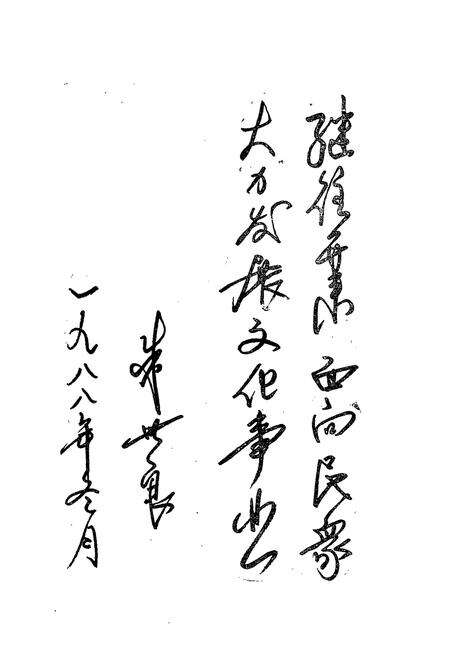 继往开来 面向民衆
大力发展文化事业
世良
一九八八年冬月